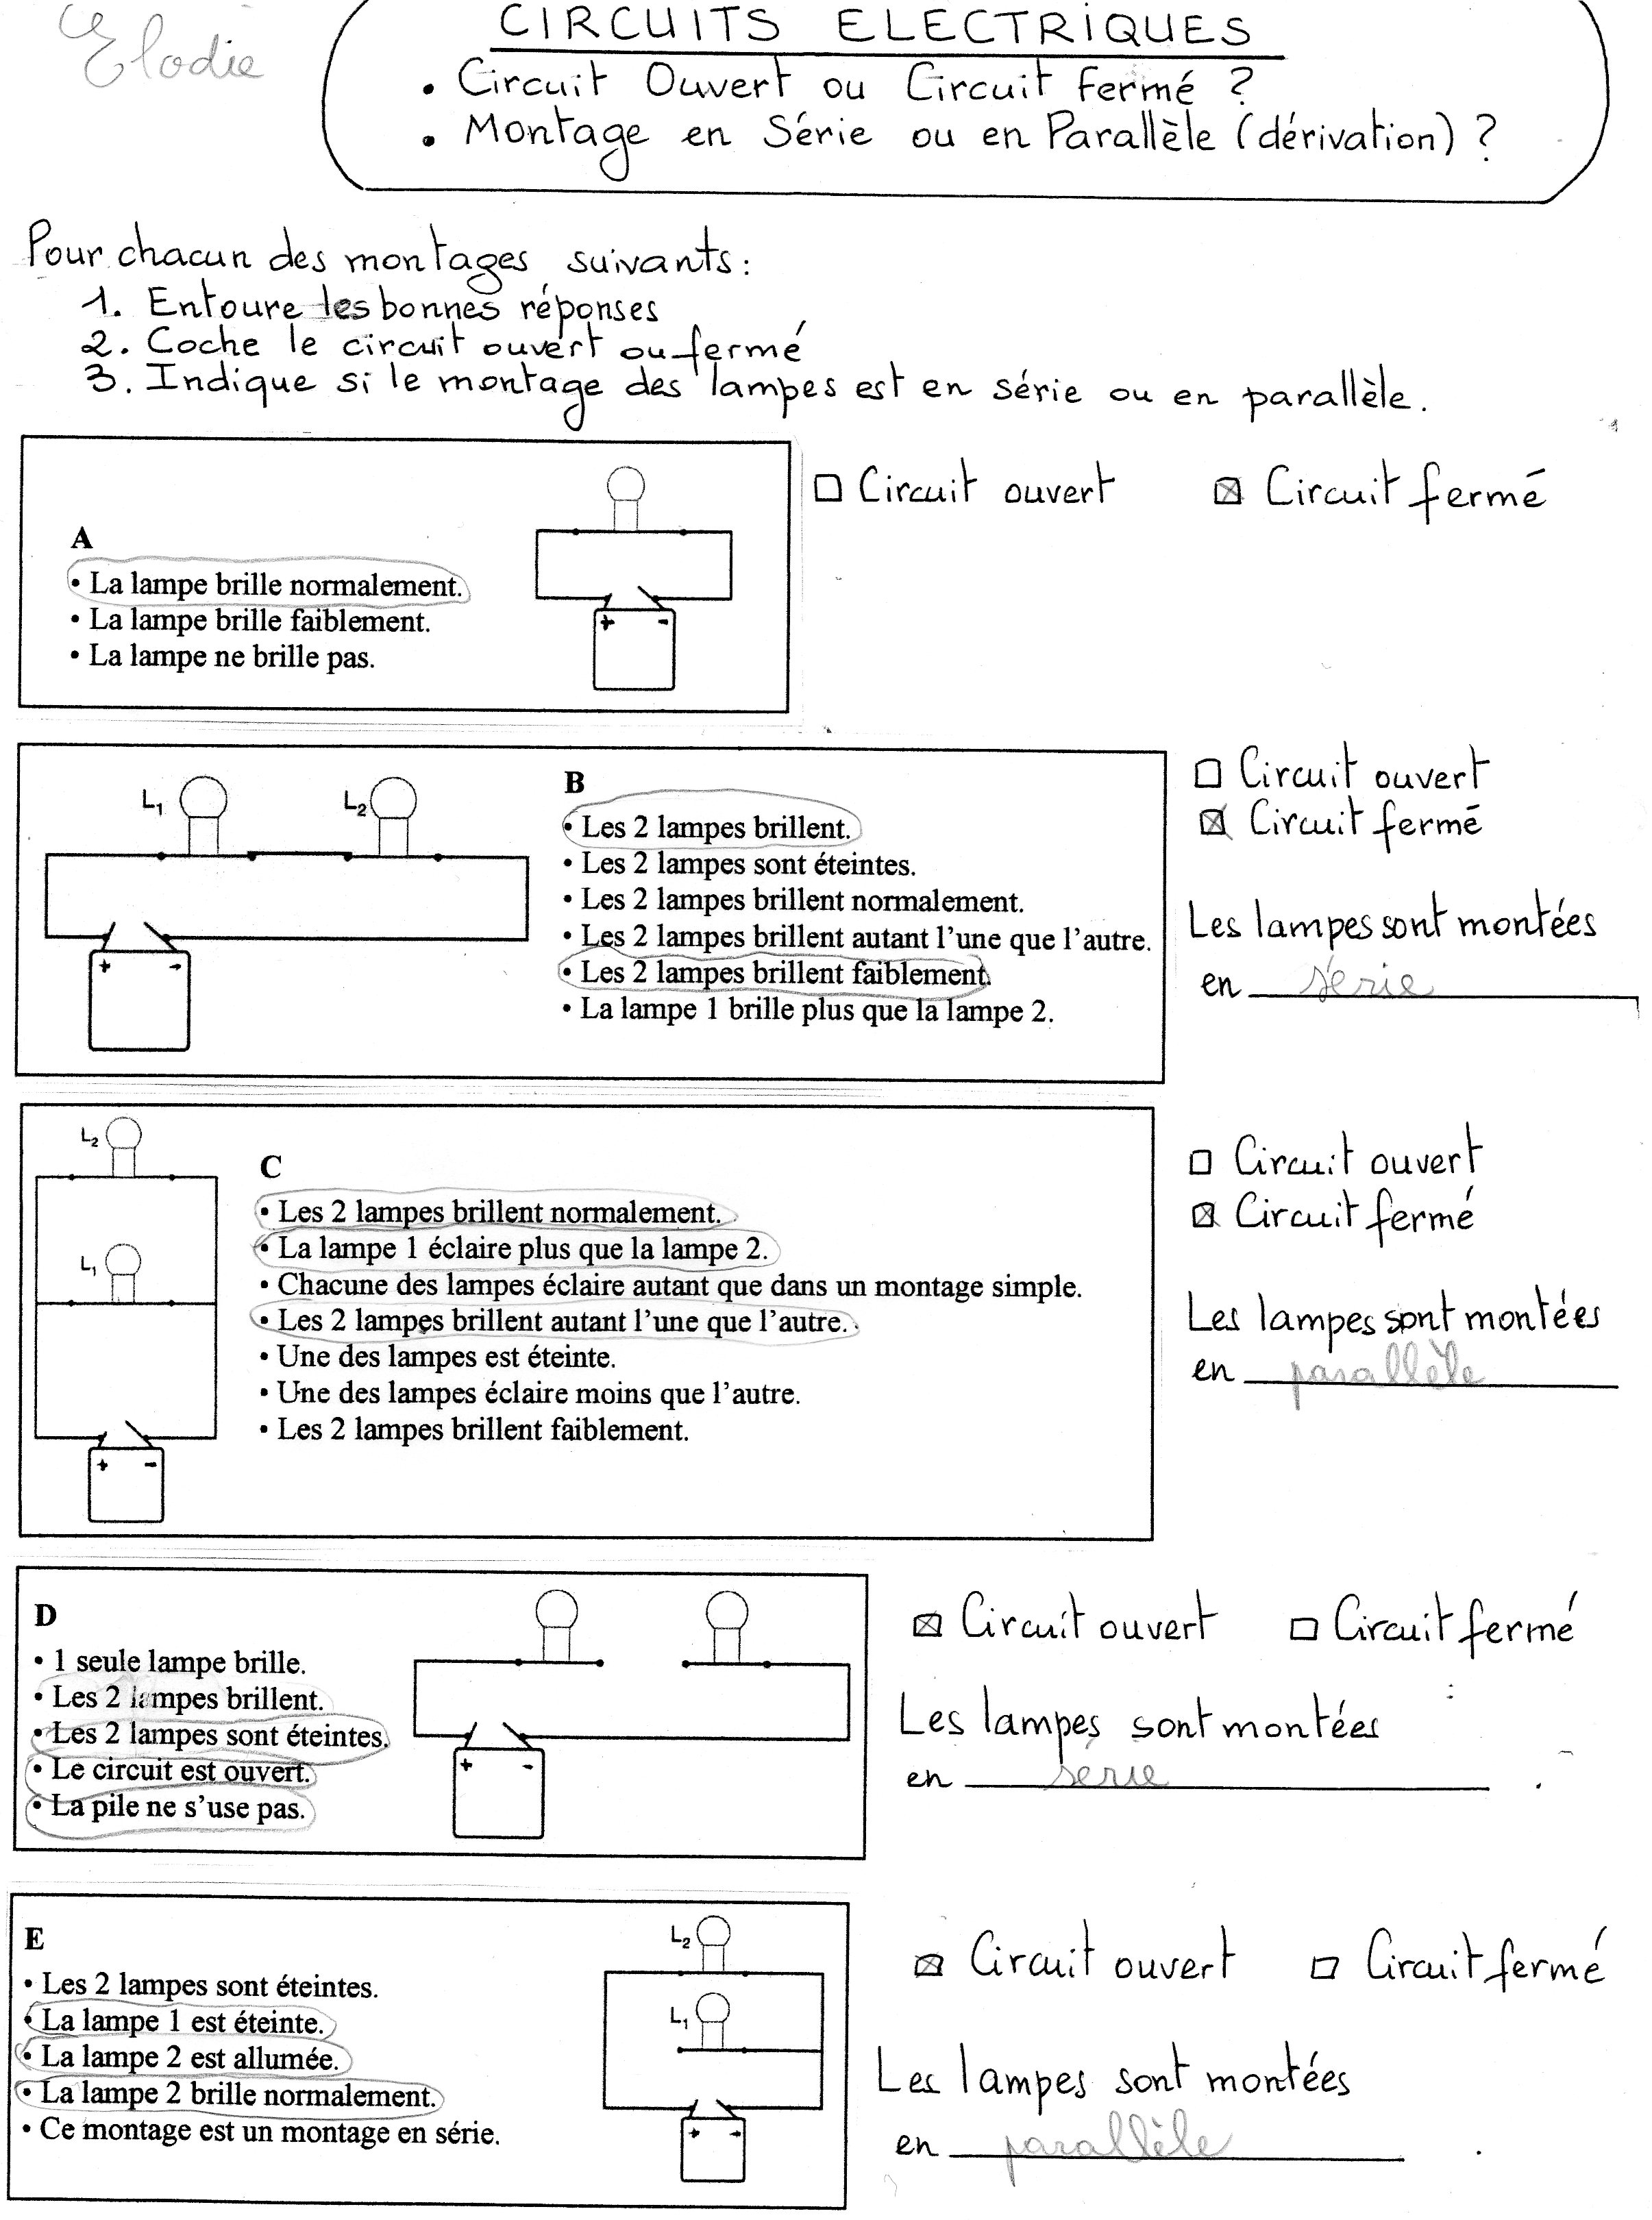 Elodie
CIRCUITS ELECTRIQUES
• Circuit Ouvert ou Circuit fermé ?
• Montage en Série ou en Parallèle (dérivation) ?
Pour chacun des montages suivants :
1. Entoure les bonnes réponses
2. Coche le circuit ouvert ou fermé
3. Indique si le montage des lampes est en série ou en parallèle.
A
• La lampe brille normalement.
• La lampe brille faiblement.
• La lampe ne brille pas.
+ -
□ Circuit ouvert ☒ Circuit fermé
L1 L2
+ -
B
• Les 2 lampes brillent.
• Les 2 lampes sont éteintes.
• Les 2 lampes brillent normalement.
• Les 2 lampes brillent autant l'une que l'autre.
• Les 2 lampes brillent faiblement.
• La lampe 1 brille plus que la lampe 2.
□ Circuit ouvert
☒ Circuit fermé
Les lampes sont montées
en série
L2
L1
+ -
C
• Les 2 lampes brillent normalement.
• La lampe 1 éclaire plus que la lampe 2.
• Chacune des lampes éclaire autant que dans un montage simple.
• Les 2 lampes brillent autant l'une que l'autre.
• Une des lampes est éteinte.
• Une des lampes éclaire moins que l'autre.
• Les 2 lampes brillent faiblement.
□ Circuit ouvert
☒ Circuit fermé
Les lampes sont montées
en parallèle
D
• 1 seule lampe brille.
• Les 2 lampes brillent.
• Les 2 lampes sont éteintes.
• Le circuit est ouvert.
• La pile ne s'use pas.
+ -
☒ Circuit ouvert □ Circuit fermé
Les lampes sont montées
en serie .
E
• Les 2 lampes sont éteintes.
• La lampe 1 est éteinte.
• La lampe 2 est allumée.
• La lampe 2 brille normalement.
• Ce montage est un montage en série.
L2
L1
+ -
☒ Circuit ouvert □ Circuit fermé
Les lampes sont montées
en parallèle .